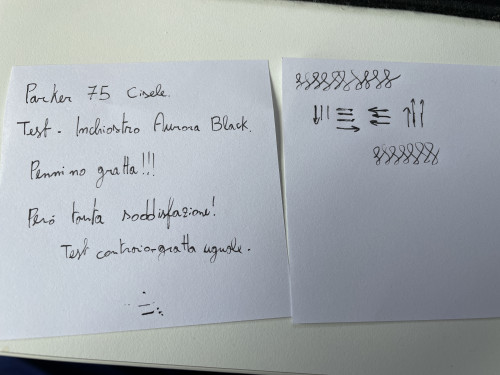 Parker 75 Cisele.
Test - Inchiostro Aurora Black.
Pennino gratta!!!
Però tanta soddisfazione!
Test contrario gratta uguale.